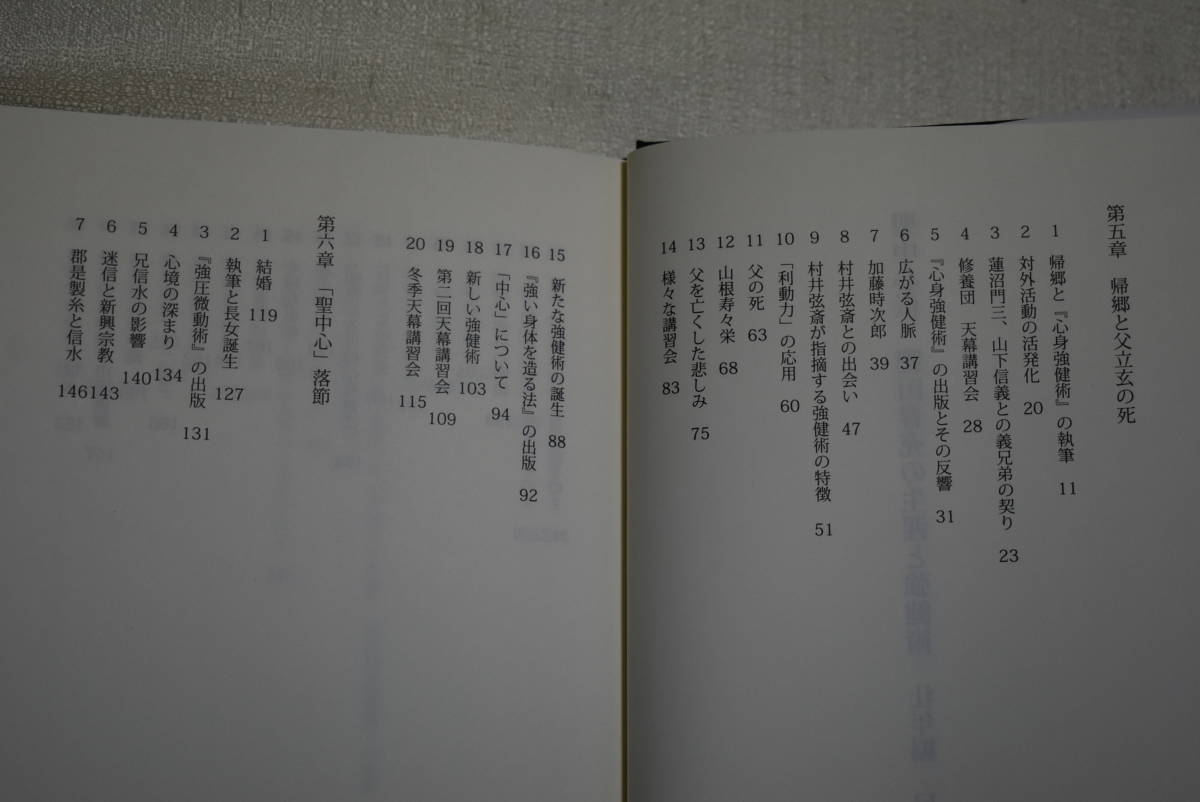 第五章　帰郷と父立玄の死
1　帰郷と『心身強健術』の執筆　11
2　対外活動の活発化　20
3　蓮沼門三、山下信義との義兄弟の契り　23
4　修養団　天幕講習会　28
5　『心身強健術』の出版とその反響　31
6　広がる人脈　37
7　加藤時次郎　39
8　村井弦斎との出会い　47
9　村井弦斎が指摘する強健術の特徴　51
10　「利動力」の応用　60
11　父の死　63
12　山根寿々栄　68
13　父を亡くした悲しみ　75
14　様々な講習会　83
15　新たな強健術の誕生　88
16　『強い身体を造る法』の出版　92
17　「中心」について　94
18　新しい強健術　103
19　第二回天幕講習会　109
20　冬季天幕講習会　115
第六章　「聖中心」落節
1　結婚　119
2　執筆と長女誕生　127
3　『強圧微動術』の出版　131
4　心境の深まり　134
5　兄信水の影響　140
6　迷信と新興宗教　143
7　郡是製糸と信水　146